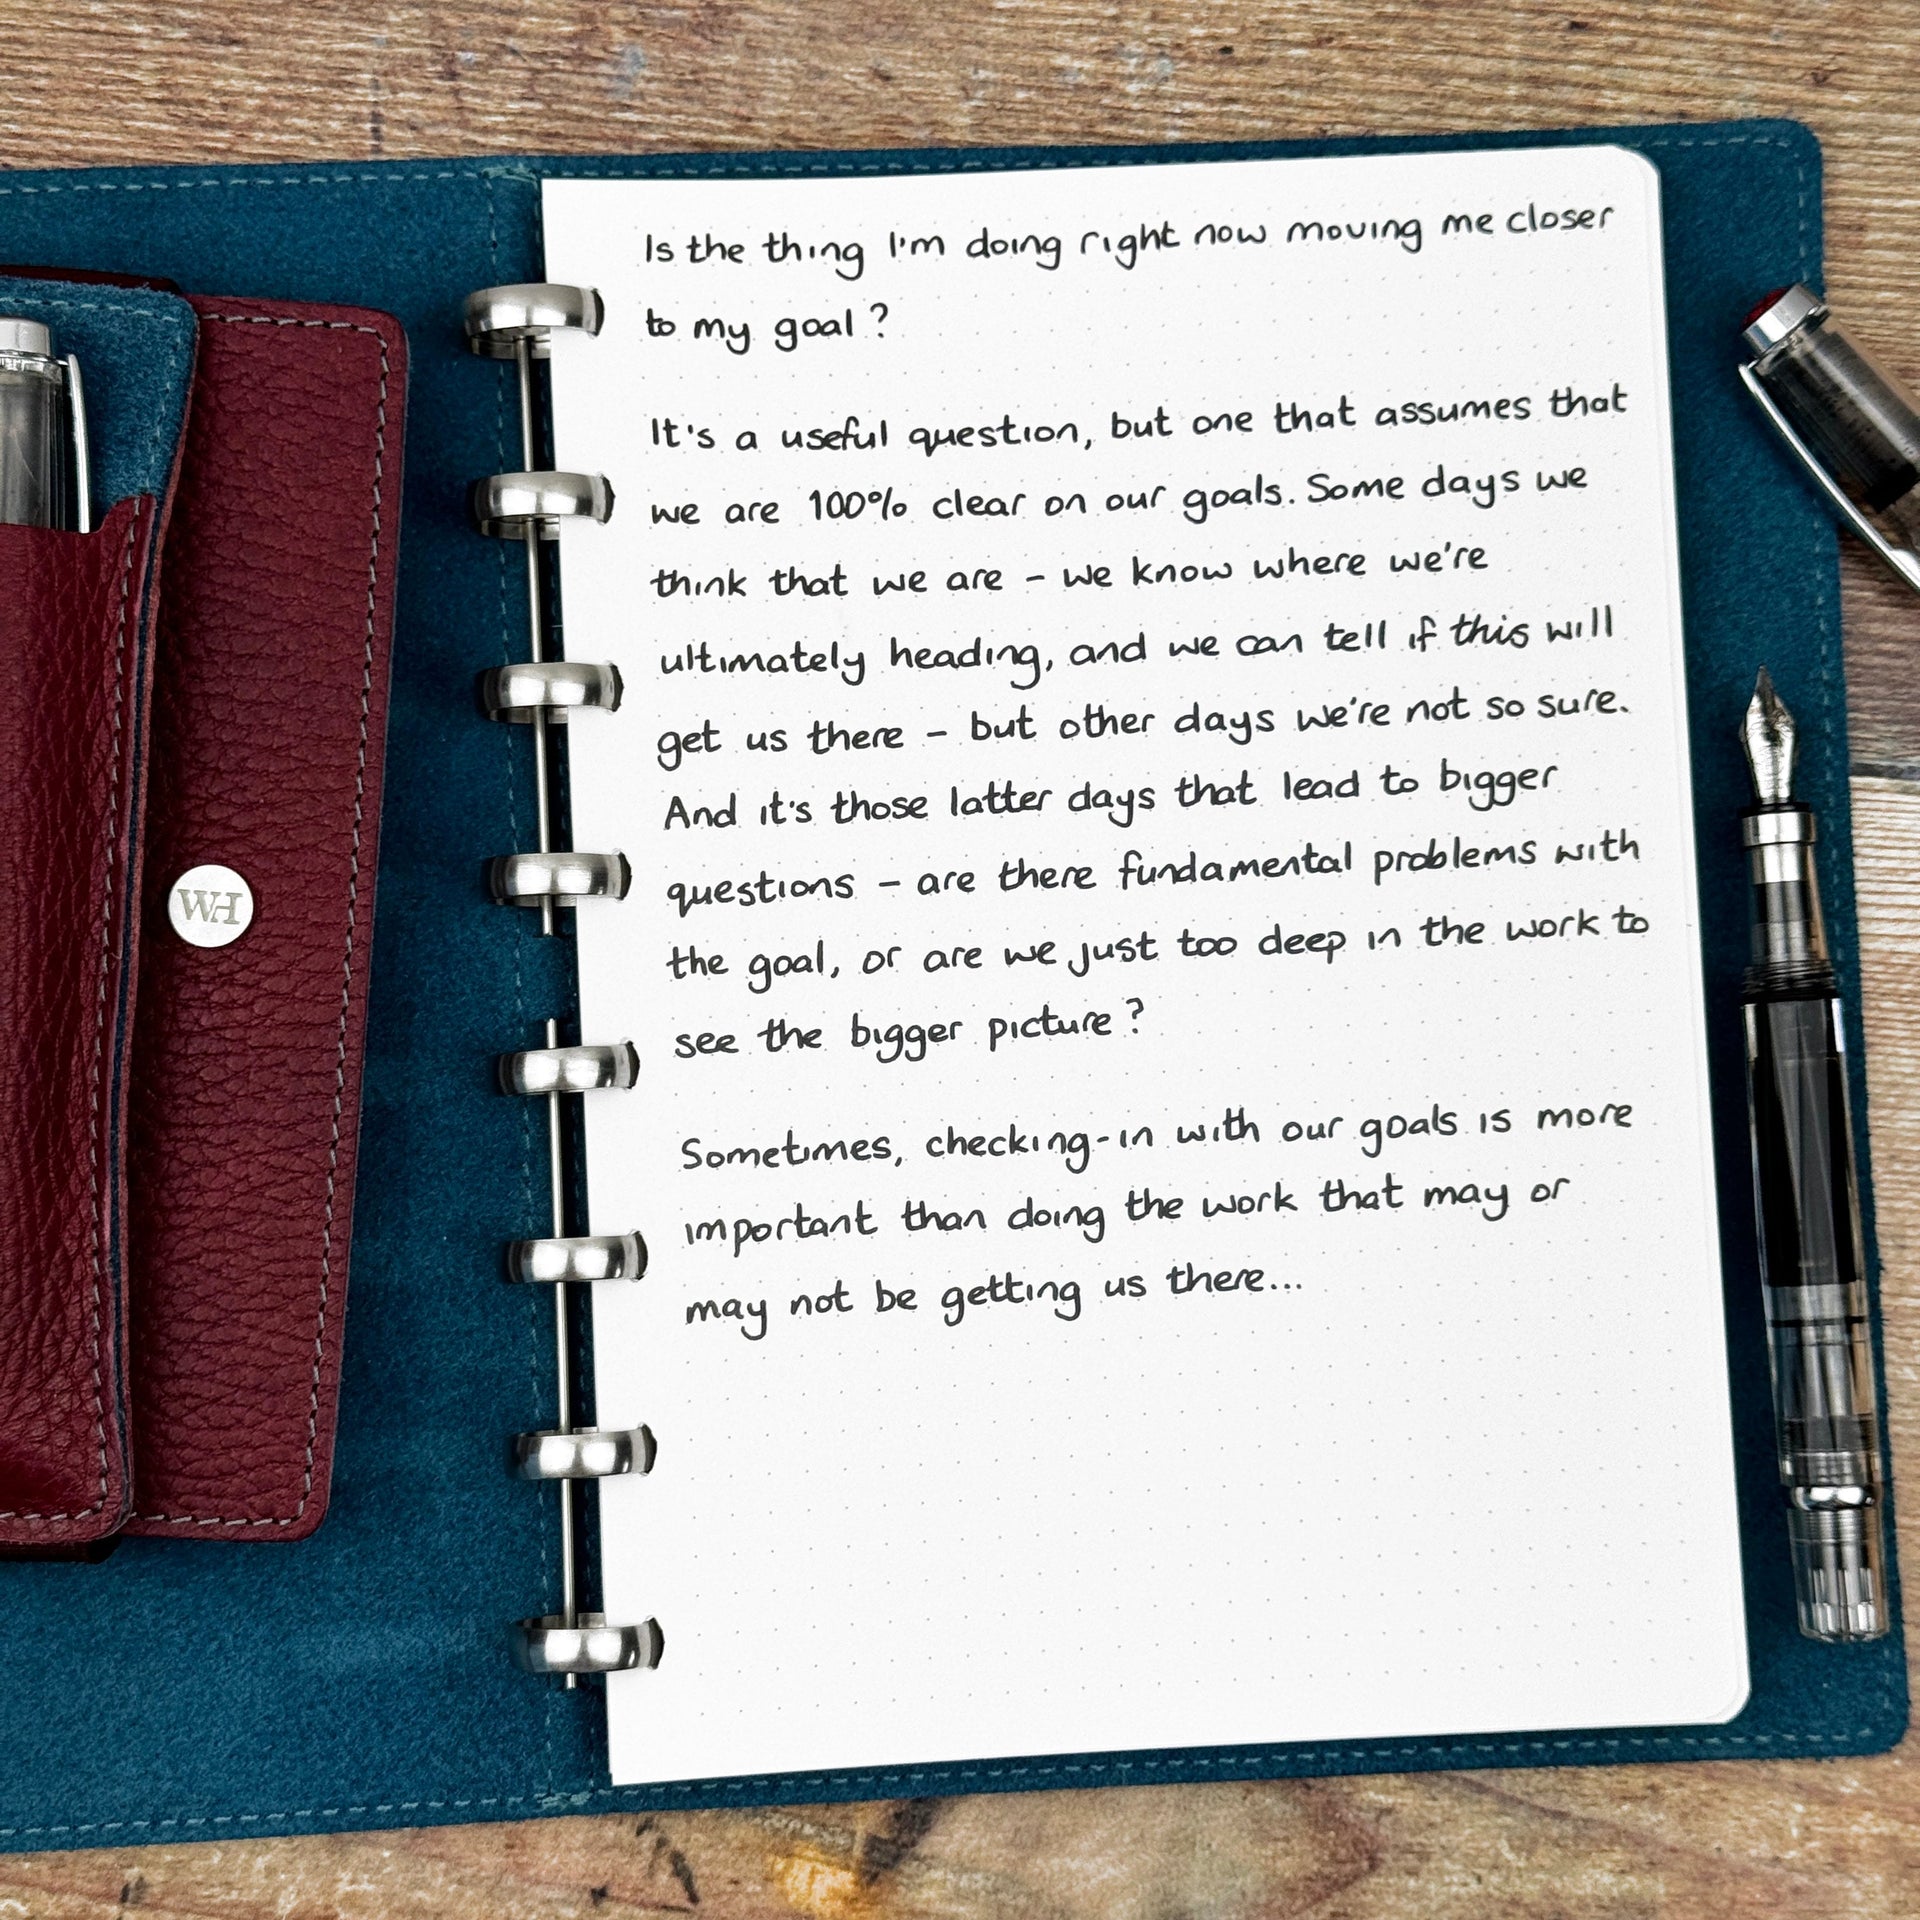 Is the thing I'm doing right now moving me closer
to my goal?
It's a useful question, but one that assumes that
we are 100% clear on our goals. Some days we
think that we are - we know where we're
ultimately heading, and we can tell if this will
get us there - but other days we're not so sure.
And it's those latter days that lead to bigger
questions - are there fundamental problems with
the goal, or are we just too deep in the work to
see the bigger picture?
Sometimes, checking-in with our goals is more
important than doing the work that may or
may not be getting us there...
WH